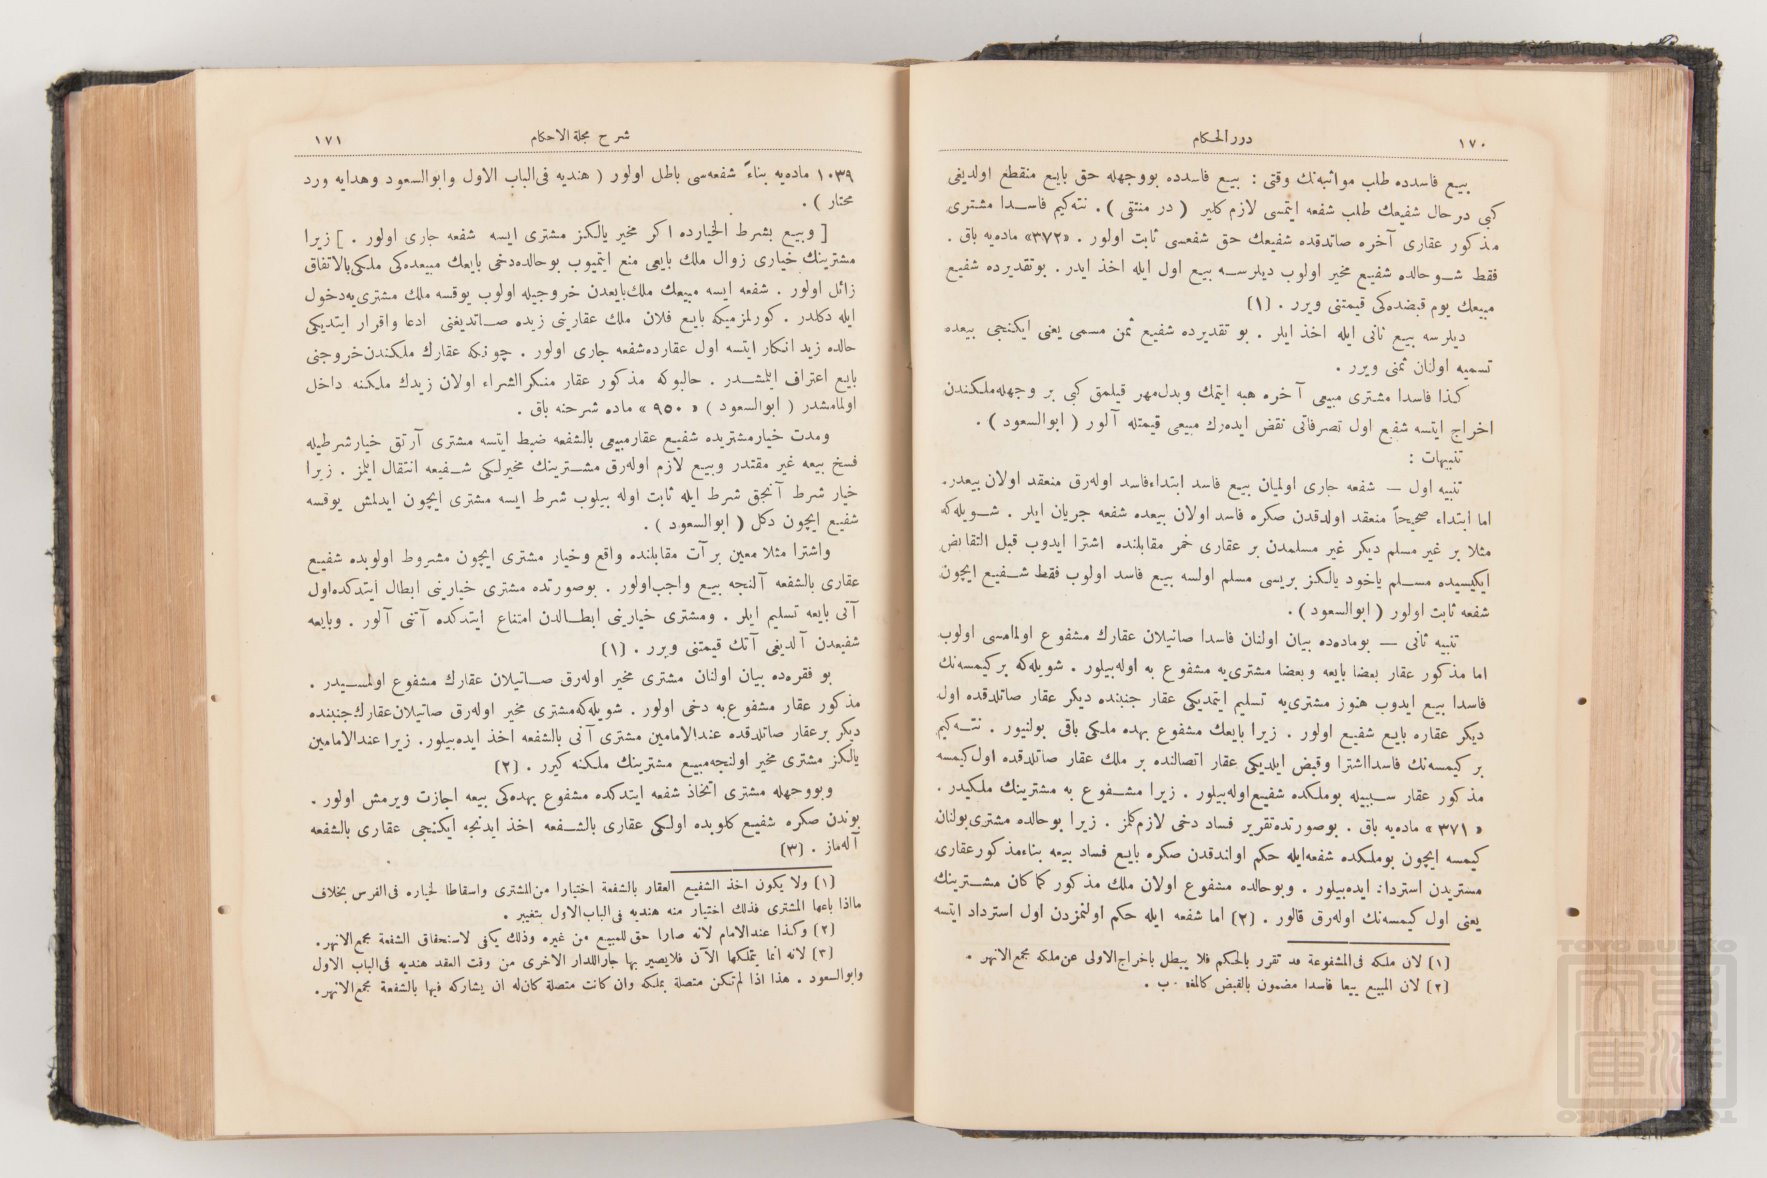 ١٧٠
درر الحكام
بيع فاسدده طلب مواثبه‌نك وقتى : بيع فاسدده بووجهله حق بايع منقطع اولديغى
كبى درحال شفيعك طلب شفعه ايتمسى لازم كلير ( در منتقى ) . نته‌كيم فاسدا مشترى
مذكور عقارى آخره صاتدقده شفيعك حق شفعسى ثابت اولور . «٣٧٢» ماده‌يه باق .
فقط شو حالده شفيع مخير اولوب ديلرسه بيع اول ايله اخذ ايدر . بوتقديرده شفيع
مبيعك يوم قبضده‌كى قيمتنى ويرر . (١)
ديلرسه بيع ثانى ايله اخذ ايلر . بو تقديرده شفيع ثمن مسمى يعنى ايكنجى بيعده
تسميه اولنان ثمنى ويرر .
كذا فاسدا مشترى مبيعى آخره هبه ايتمك وبدل مهر قيلمق كبى بر وجهله ملكندن
اخراج ايتسه شفيع اول تصرفاتى نقض ايده‌رك مبيعى قيمتله آلور ( ابوالسعود ) .
تنبيهات :
تنبيه اول — شفعه جارى اولميان بيع فاسد ابتداء فاسد اوله‌رق منعقد اولان بيعدر.
اما ابتداء صحيحاً منعقد اولدقدن صكره فاسد اولان بيعده شفعه جريان ايلر . شويله‌كه
مثلا بر غير مسلم ديكر غير مسلمدن بر عقارى خمر مقابلنده اشترا ايدوب قبل التقابض
ايكيسيده مسلم ياخود يالكز بريسى مسلم اولسه بيع فاسد اولوب فقط شفيع ايچون
شفعه ثابت اولور ( ابوالسعود ) .
تنبيه ثانى — بوماده‌ده بيان اولنان فاسدا صاتيلان عقارك مشفوع اولمامسى اولوب
اما مذكور عقار بعضا بايعه وبعضا مشترى‌يه مشفوع به اوله‌بيلور . شويله‌كه بركيمسه‌نك
فاسدا بيع ايدوب هنوز مشترى‌يه تسليم ايتمديكى عقار جنبنده ديكر عقار صاتلدقده اول
ديكر عقاره بايع شفيع اولور . زيرا بايعك مشفوع بهده ملكى باقى بولنيور . نته‌كيم
بر كيمسه‌نك فاسدا اشترا وقبض ايلديكى عقار اتصالنده بر ملك عقار صاتلدقده اول كيمسه
مذكور عقار سببيله بوملكده شفيع اوله‌بيلور . زيرا مشفوع به مشترينك ملكيدر .
« ٣٧١ » ماده‌يه باق . بوصورتده تقرير فساد دخى لازم كلمز . زيرا بوحالده مشترى بولنان
كيمسه ايچون بوملكده شفعه ايله حكم اولندقدن صكره بايع فساد بيعه بناء مذكور عقارى
مشتريدن استرداد ايده‌بيلور . وبوحالده مشفوع اولان ملك مذكور كما كان مشترينك
يعنى اول كيمسه‌نك اوله‌رق قالور . (٢) اما شفعه ايله حكم اولنمزدن اول استرداد ايتسه
(١) لان ملكه فى المشفوعة قد تقرر بالحكم فلا يبطل باخراج الاولى عن ملكه مجمع الانهر .
(٢) لان المبيع بيعا فاسدا مضمون بالقبض
١٧١
شرح مجلة الاحكام
١٠٣٩ ماده‌يه بناءً شفعه‌سى باطل اولور ( هنديه فى الباب الاول وابوالسعود وهدايه ورد
محتار ) .
[ وبيع بشرط الخيارده اكر مخير يالكز مشترى ايسه شفعه جارى اولور . ] زيرا
مشترينك خيارى زوال ملك بايعى منع ايتميوب بوحالده دخى بايعك مبيعده‌كى ملكى بالاتفاق
زائل اولور . شفعه ايسه مبيعك ملك بايعدن خروجيله اولوب يوقسه ملك مشترى‌يه دخول
ايله دكلدر . كورلمزميكه بايع فلان ملك عقارينى زيده صاتديغنى ادعا واقرار ايتديكى
حالده زيد انكار ايتسه اول عقارده شفعه جارى اولور . چونكه عقارك ملكندن خروجنى
بايع اعتراف ايلمشدر . حالبوكه مذكور عقار منكر الشراء اولان زيدك ملكنه داخل
اولمامشدر ( ابوالسعود ) « ٩٥٠ » ماده شرحنه باق .
ومدت خيار مشتريده شفيع عقار مبيعى بالشفعه ضبط ايتسه مشترى آرتق خيار شرطيله
فسخ بيعه غير مقتدر وبيع لازم اوله‌رق مشترينك مخيرلكى شفيعه انتقال ايلمز . زيرا
خيار شرط آنجق شرط ايله ثابت اوله بيلوب شرط ايسه مشترى ايچون ايدلمش يوقسه
شفيع ايچون دكل ( ابوالسعود ) .
واشترا مثلا معين بر آت مقابلنده واقع وخيار مشترى ايچون مشروط اولوبده شفيع
عقارى بالشفعه آلنجه بيع واجب اولور . بوصورتده مشترى خيارينى ابطال ايتدكده اول
آتى بايعه تسليم ايلر . ومشترى خيارينى ابطالدن امتناع ايتدكده آتنى آلور . وبايعه
شفيعدن آلديغى آتك قيمتنى ويرر . (١)
بو فقره‌ده بيان اولنان مشترى مخير اوله‌رق صاتيلان عقارك مشفوع اولمسيدر .
مذكور عقار مشفوع به دخى اولور . شويله‌كه مشترى مخير اوله‌رق صاتيلان عقارك جنبنده
ديكر بر عقار صاتلدقده عندالامامين مشترى آنى بالشفعه اخذ ايده‌بيلور. زيرا عندالامامين
يالكز مشترى مخير اولنجه مبيع مشترينك ملكنه كيرر . (٢)
وبووجهله مشترى اتخاذ شفعه ايتدكده مشفوع بهده‌كى بيعه اجازت ويرمش اولور .
بوندن صكره شفيع كلوبده اولكى عقارى بالشفعه اخذ ايدنجه ايكنجى عقارى بالشفعه
آله‌ماز . (٣)
(١) ولا يكون اخذ الشفيع العقار بالشفعة اختيارا من المشترى واسقاطا لخياره فى الفرس بخلاف
ما اذا باعها المشترى فذلك اختيار منه هنديه فى الباب الاول بتغيير .
(٢) وكذا عند الامام لانه صارا حق للمبيع من غيره وذلك يكفى لاستحقاق الشفعة مجمع الانهر.
(٣) لانه انما يتملكها الآن فلايصير بها جار اللدار الاخرى من وقت العقد هنديه فى الباب الاول
وابوالسعود . هذا اذا لم تكن متصلة بملكه وان كانت متصلة كان له ان يشاركه فيها بالشفعة مجمع الانهر.
TOYO BUNKO